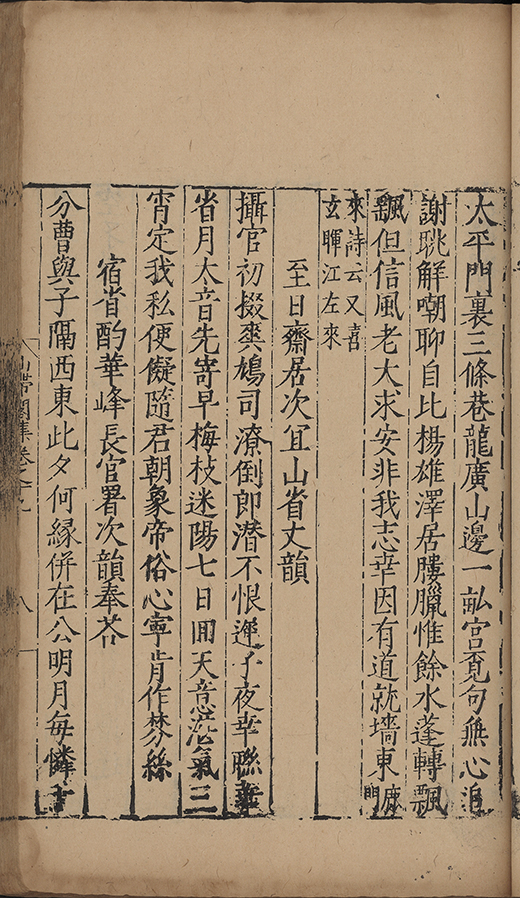 太平門裏三條巷龍廣山邊一畝宮覔句無心追
謝眺解嘲聊自比楊雄澤居膢臘惟餘水蓬轉飄
颻但信風老大求安非我志幸因有道就墻東鹿門
來詩云又喜
玄暉江左來
至日齋居次冝山省丈韻
攝官初掇爽鳩司潦倒即潜不恨遲子夜幸聯華
省月太音先寄早梅枝迷陽七日囬天意沆氣三
宵定我私便儗隨君朝象帝俗心寧肯作棼絲
宿省酌華峰長官署次韻奉荅
分曹與子隔西東此夕何緣併在公明月每憐千
山帶閣集卷之九
八